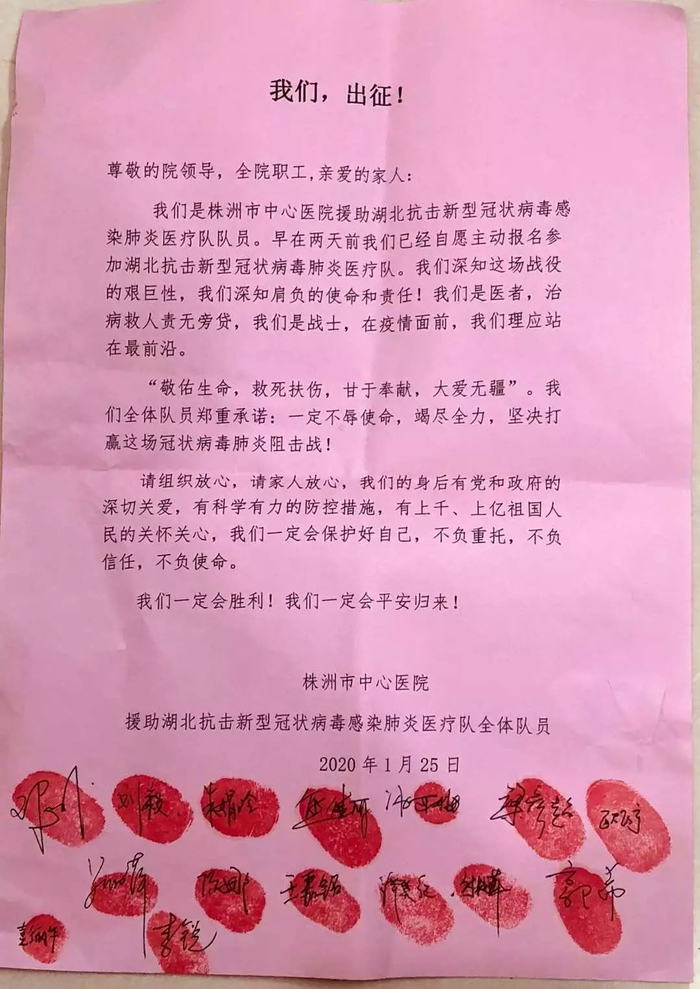 我们，出征！
尊敬的院领导，全院职工,亲爱的家人：
我们是株洲市中心医院援助湖北抗击新型冠状病毒感
染肺炎医疗队队员。早在两天前我们已经自愿主动报名参
加湖北抗击新型冠状病毒肺炎医疗队。我们深知这场战役
的艰巨性，我们深知肩负的使命和责任！我们是医者，治
病救人责无旁贷，我们是战士，在疫情面前，我们理应站
在最前沿。
“敬佑生命，救死扶伤，甘于奉献，大爱无疆”。我
们全体队员郑重承诺：一定不辱使命，竭尽全力，坚决打
赢这场冠状病毒肺炎阻击战！
请组织放心，请家人放心，我们的身后有党和政府的
深切关爱，有科学有力的防控措施，有上千、上亿祖国人
民的关怀关心，我们一定会保护好自己，不负重托，不负
信任，不负使命。
我们一定会胜利！我们一定会平安归来！
株洲市中心医院
援助湖北抗击新型冠状病毒感染肺炎医疗队全体队员
2020 年 1 月 25 日
刘毅
李锐